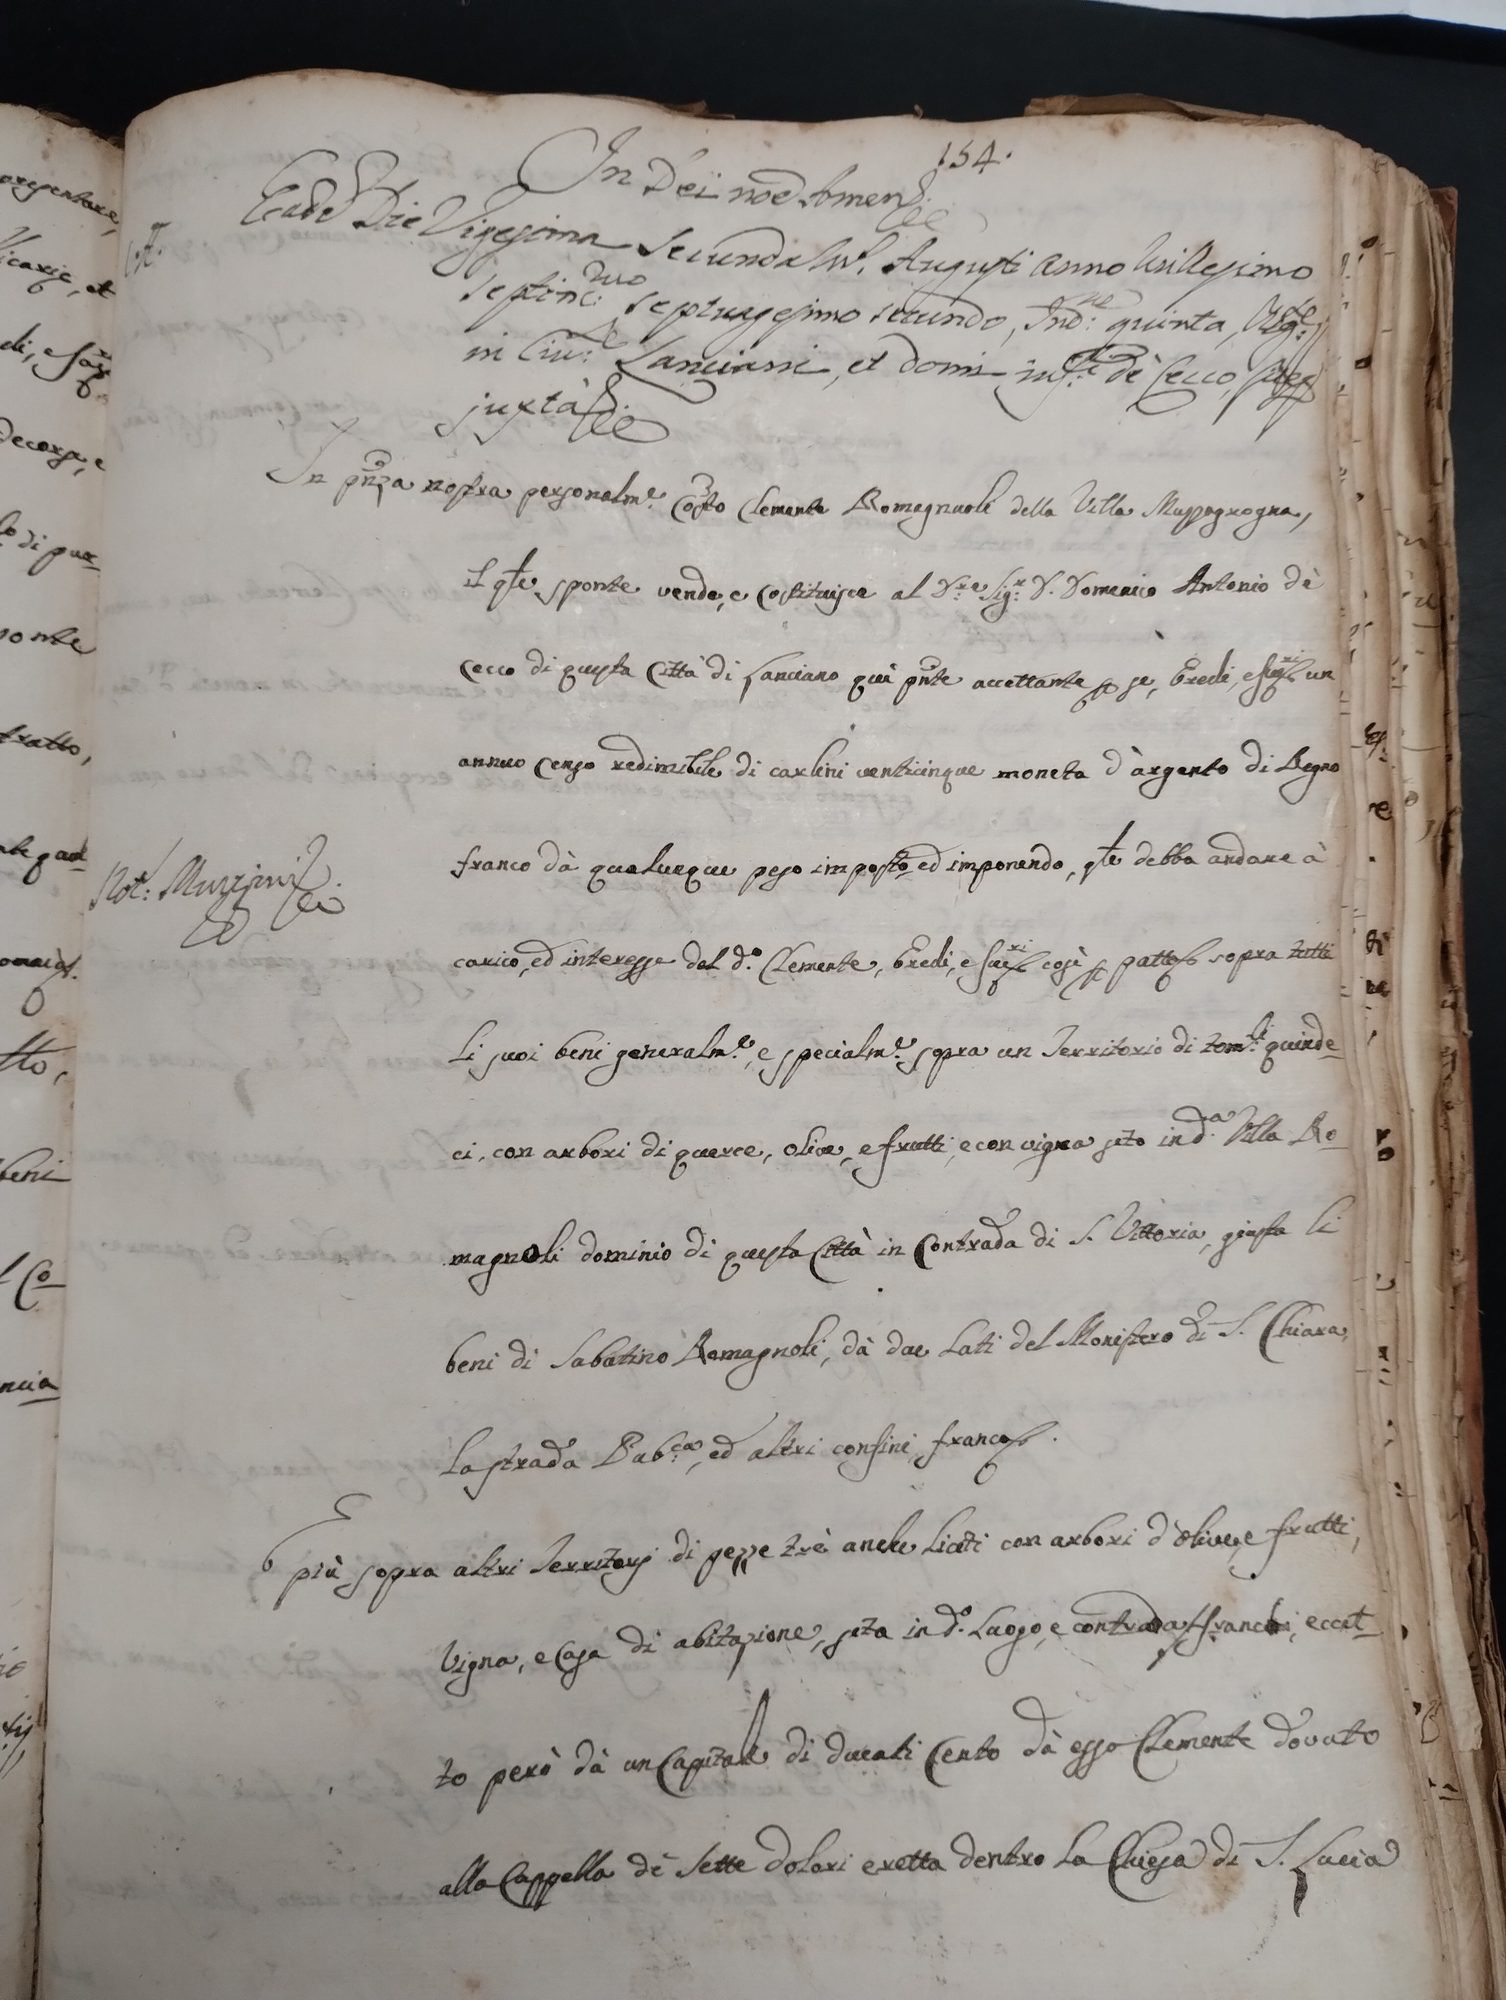 154.
In Dei nõe Amen
Eadẽ Die Vigesima Secunda M. Augusti Anno Millesimo
Septinc: duo Septuagesimo secundo, Ind:ne quinta, Reg:te
in Civ:e Lanciani, et domi inf:ti de Cecco, sitæ
juxta
In pñza nostra personalm:e Costo Clemente Romagnuoli della Villa Mozzagrogna,
il qle sponte vende, e Costituisce al D:re Sig:r D. Domenico Antonio dè
Cecco di questa Città di Lanciano qui pñte accettante p se, Eredi, e Suc:ri un
annuo Censo redimibile di carlini venticinque moneta d'argento di Regno
franco dà qualunque peso imposto, ed imponendo, qle debba andare à
Not: Muzzini
carico, ed interesse del d:o Clemente, Eredi, e Suc:ri così p patto sopra tutti
li suoi beni generalm:e, e specialm:e sopra un Territorio di tom:li quinde-
ci, con arbori di querce, olive, e frutti, e con vigna sito in d:a Villa Ro-
magnoli dominio di questa Città in Contrada di S. Vittoria, giusta li
beni di Sabatino Romagnoli, dà due lati del Monistero di S. Chiara,
la strada Pub:ca, ed altri confini, franco.
E più sopra altri Territorj di pezze trè anche liciti con arbori d'olive, e frutti,
Vigna, e Casa di abitazione, sita in d:o Luogo, e contrada, franchi, eccet-
to però dà un Capitale di ducati Cento dà esso Clemente dovuto
alla Cappella dè Sette Dolori eretta dentro la Chiesa di S. Lucia